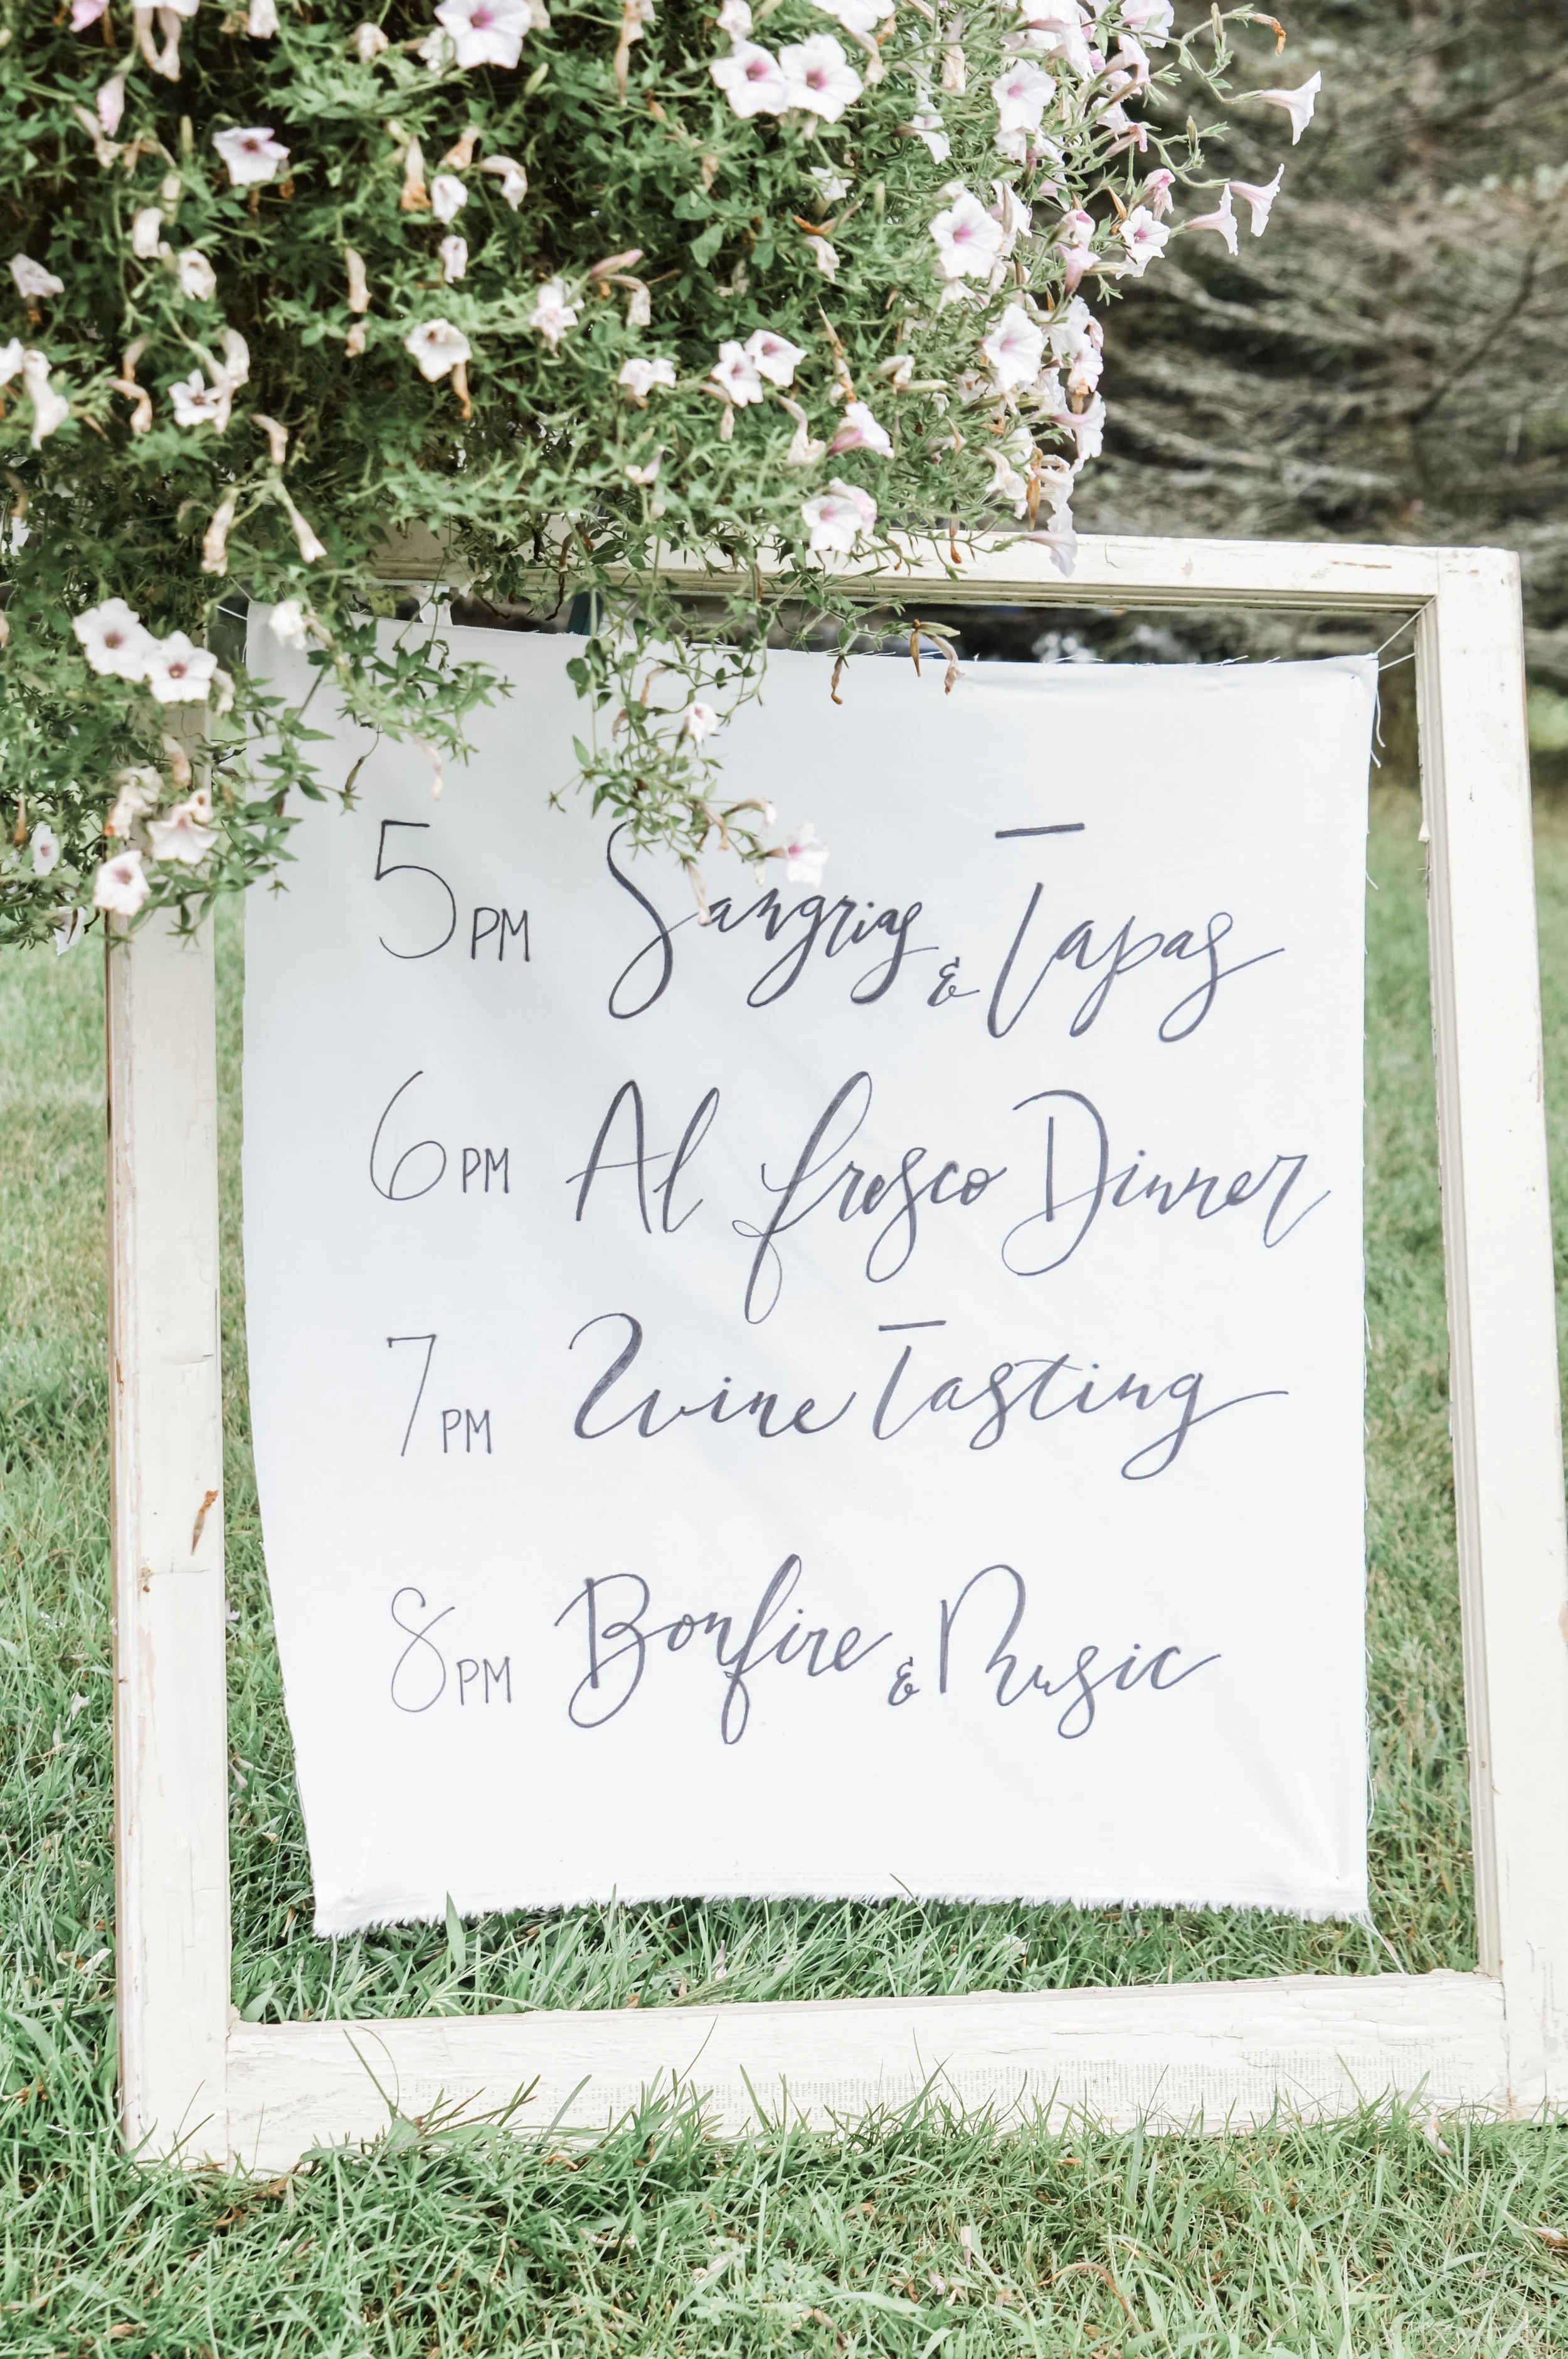 5PM Sangrias & Tapas
6PM Al fresco Dinner
7PM Wine Tasting
8PM Bonfire & Music